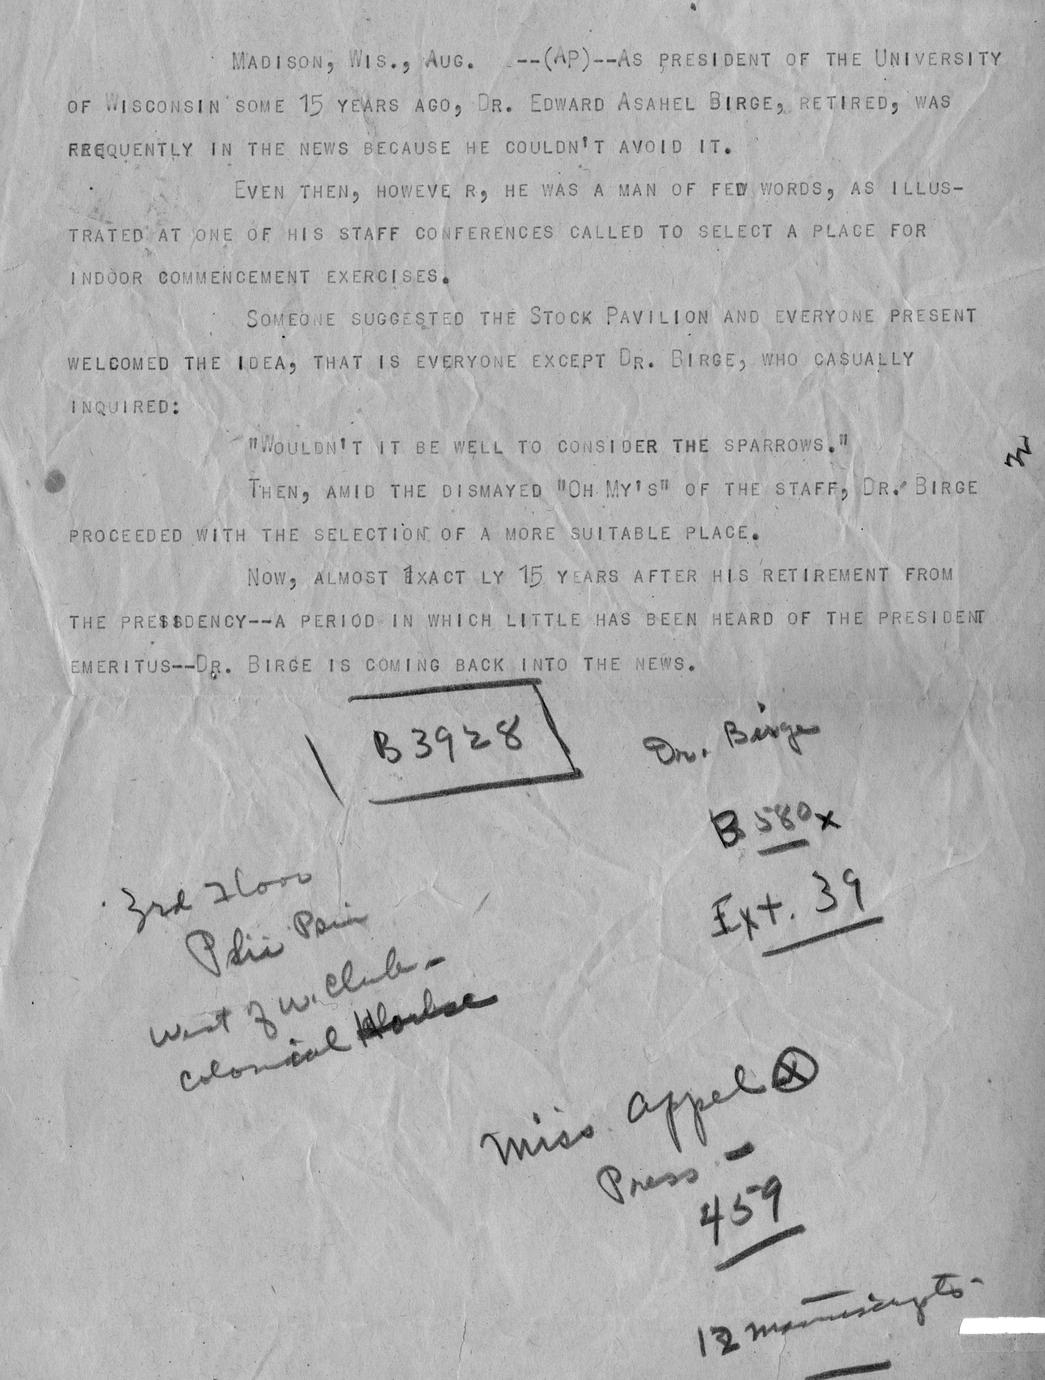 MADISON, WIS., AUG.   --(AP)--AS PRESIDENT OF THE UNIVERSITY
OF WISCONSIN SOME 15 YEARS AGO, DR. EDWARD ASAHEL BIRGE, RETIRED, WAS
FREQUENTLY IN THE NEWS BECAUSE HE COULDN'T AVOID IT.
EVEN THEN, HOWEVE R, HE WAS A MAN OF FEW WORDS, AS ILLUS-
TRATED AT ONE OF HIS STAFF CONFERENCES CALLED TO SELECT A PLACE FOR
INDOOR COMMENCEMENT EXERCISES.
SOMEONE SUGGESTED THE STOCK PAVILION AND EVERYONE PRESENT
WELCOMED THE IDEA, THAT IS EVERYONE EXCEPT DR. BIRGE, WHO CASUALLY
INQUIRED:
"WOULDN'T IT BE WELL TO CONSIDER THE SPARROWS."
THEN, AMID THE DISMAYED "OH MY'S" OF THE STAFF, DR. BIRGE
PROCEEDED WITH THE SELECTION OF A MORE SUITABLE PLACE.
NOW, ALMOST EXACT LY 15 YEARS AFTER HIS RETIREMENT FROM
THE PRESIDENCY--A PERIOD IN WHICH LITTLE HAS BEEN HEARD OF THE PRESIDENT
EMERITUS--DR. BIRGE IS COMING BACK INTO THE NEWS.
B3928
Dr. Birge
B 580x
Ext. 39
3rd Floor
Phi Psi
West of W. Club-
Colonial House
Miss Appel X
Press -
459
12 manuscripts-